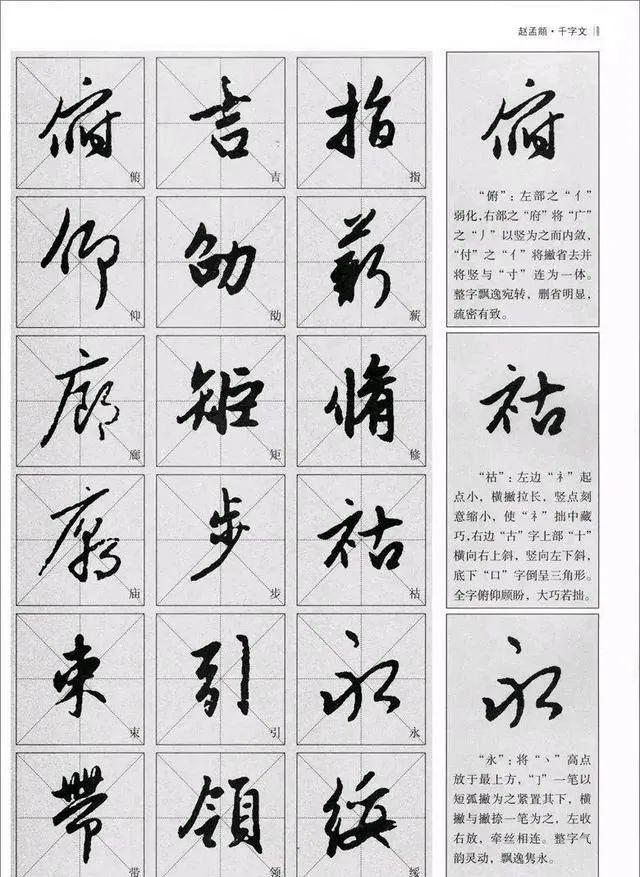 赵孟頫·千字文
指薪脩祜永綏
指薪修祜永绥
吉劭矩步引領
吉劭矩步引领
俯仰廊廟束帶
俯仰廊庙束带
俯
“俯”：左部之“亻”
弱化，右部之“府”将“广”
之“丿”以竖为之而内敛，
“付”之“亻”将撇省去并
将竖与“寸”连为一体。
整字飘逸宛转，删省明显，
疏密有致。
祜
“祜”：左边“礻”起
点小，横撇拉长，竖点刻
意缩小，使“礻”拙中藏
巧，右边“古”字上部“十”
横向右上斜，竖向左下斜，
底下“口”字倒呈三角形。
全字俯仰顾盼，大巧若拙。
永
“永”：将“丶”高点
放于最上方，“㇆”一笔以
短弧撇为之紧置其下，横
撇与撇捺一笔为之，左收
右放，牵丝相连。整字气
韵灵动，飘逸隽永。